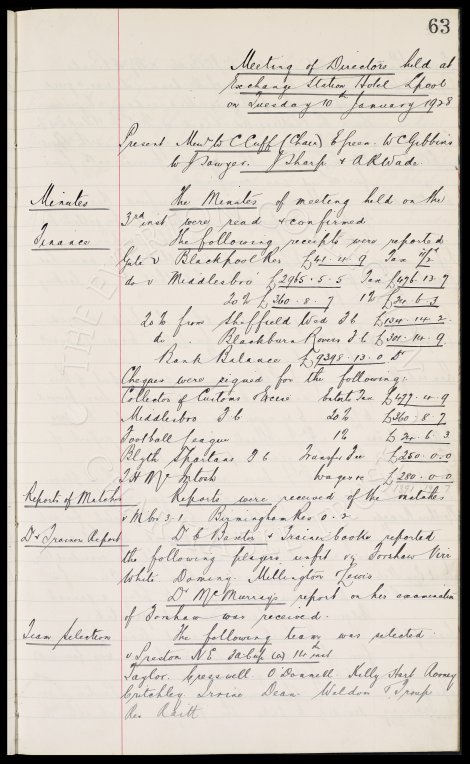 63
Meeting of Directors held at
Exchange Station Hotel Lpool
on Tuesday 10th January 1928
Present Messrs W C Cuff (Chair) E Green. W C Gibbins
W J Sawyer. J Sharp & A R Wade.
Minutes The Minutes of meeting held on the
3rd inst were read & confirmed
Finance The following receipts were reported
Gate v Blackpool Res £41.4.9 Tax
do v Middlesbro £2965.5.5 Tax £476.13.7
20% £360.8.7 1% £24.6.3
20% from Sheffield Wed F C £134.14.2
do . Blackburn Rovers F C £301.14.9
Bank Balance £9398.13.0 Dr
Cheques were signed for the following:
Collector of Customs & Excise Enterts Tax £477.4.9
Middlesbro F C 20% £360.8.7
Football League 1% £24.6.3
Blyth Spartans F C Transfer Fee £250.0.0
T H McIntosh wages £280.0.0
Reports of Matches Reports were received of the matches
v M'bro 3.1 Birmingham Res 0.2
Dr & Trainers Report Dr C Baxter & Trainer Cooke reported
the following players unfit viz Forshaw Virr
White Dominy Millington Lewis
Dr McMurrays report on his examination
of Forshaw was received.
Team Selection The following team was selected
v Preston N E Eng Cup (a) 14th inst
Taylor. Cresswell O'Donnell. Kelly Hart Rooney
Critchley Irvine Dean Weldon & Troup
Res Raitt